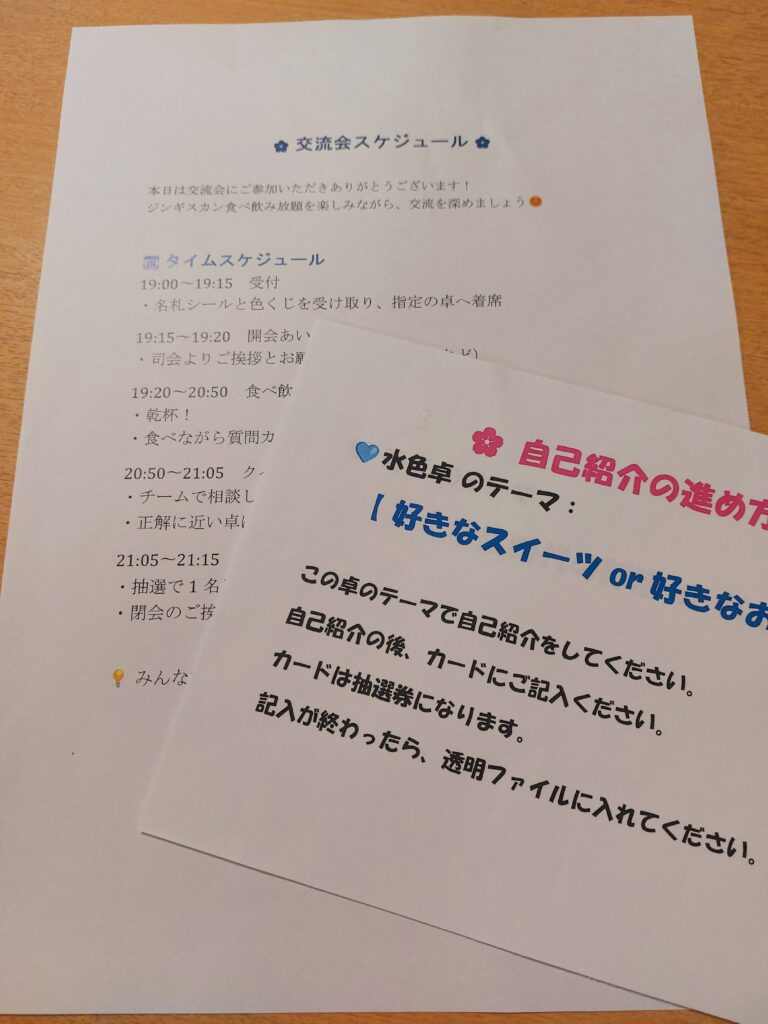 交流会スケジュール
本日は交流会にご参加いただきありがとうございます！
ジンギスカン食べ飲み放題を楽しみながら、交流を深めましょう😊
📅 タイムスケジュール
19:00～19:15　受付
・名札シールと色くじを受け取り、指定の卓へ着席
19:15～19:20　開会あい
・司会よりご挨拶とお願
19:20～20:50　食べ飲
・乾杯！
・食べながら質問カ
20:50～21:05　クイ
・チームで相談し
・正解に近い卓に
21:05～21:15
・抽選で1名
・閉会のご挨
💡 みんな
自己紹介の進め方
💙水色卓 のテーマ：
【 好きなスイーツ or 好きなお
この卓のテーマで自己紹介をしてください。
自己紹介の後、カードにご記入ください。
カードは抽選券になります。
記入が終わったら、透明ファイルに入れてください。